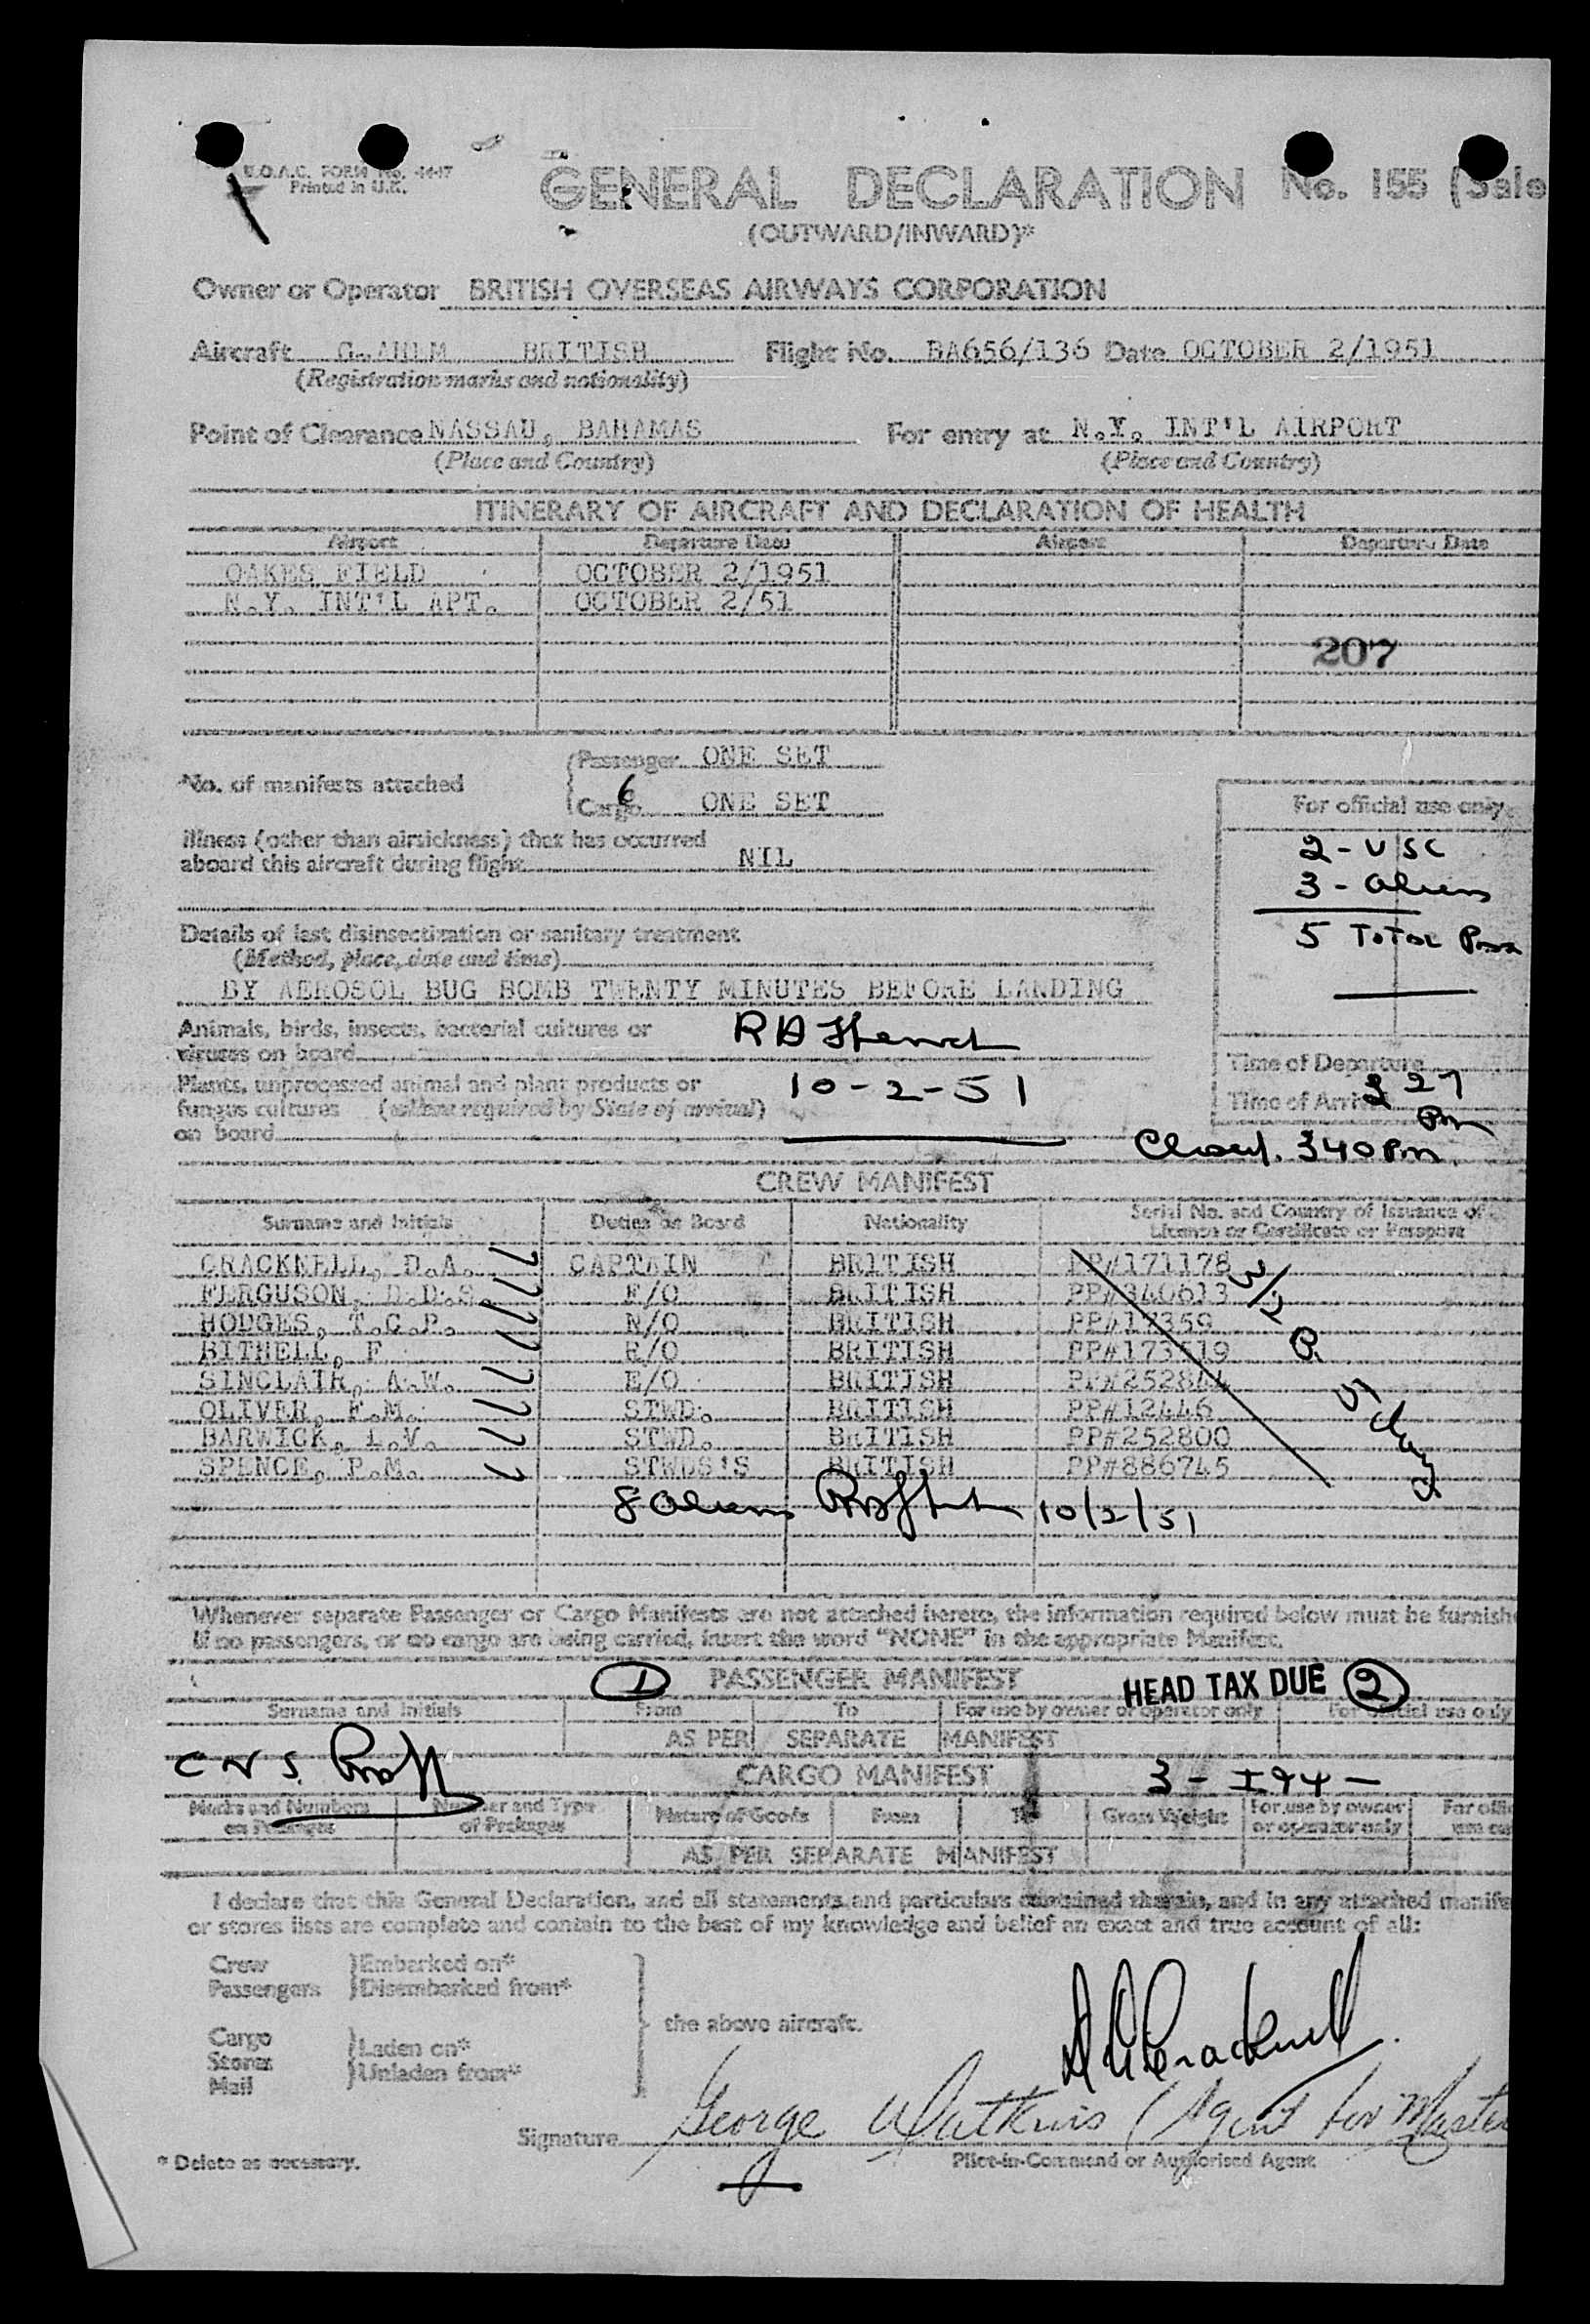 B.O.A.C. FORM No. 4447
Printed in U.K.
GENERAL DECLARATION No. 155 (Sale
(OUTWARD/INWARD)*
Owner or Operator BRITISH OVERSEAS AIRWAYS CORPORATION
Aircraft BRITISH Flight No. BA656/136 Date OCTOBER 2/1951
(Registration marks and nationality)
Point of Clearance NASSAU, BAHAMAS For entry at N.Y. INT'L AIRPORT
(Place and Country) (Place and Country)
ITINERARY OF AIRCRAFT AND DECLARATION OF HEALTH
Airport Departure Date Airport Departure Date
OAKES FIELD OCTOBER 2/1951
N.Y. INT'L APT. OCTOBER 2/51
207
No. of manifests attached
Passenger ONE SET
6
Cargo ONE SET
For official use only
Illness (other than airsickness) that has occurred
aboard this aircraft during flight NIL
2 - USC
3 - Aliens
5 Total Pass
Details of last disinsectization or sanitary treatment
(Method, place, date and time)
BY AEROSOL BUG BOMB TWENTY MINUTES BEFORE LANDING
Animals, birds, insects, bacterial cultures or
viruses on board
Time of Departure
Plants, unprocessed animal and plant products or 10-2-51
fungus cultures (when required by State of arrival)
on board
Time of Arrival 2 27
Pm
Closed. 340 Pm
CREW MANIFEST
Surname and Initials Duties on Board Nationality Serial No. and Country of Issuance of
Licence or Certificate or Passport
CRACKNELL, D.A. 7 CAPTAIN BRITISH PP#171178
FERGUSON, D.D.S. 7 F/O BRITISH PP#340613
HODGES, T.C.P. 7 N/O BRITISH PP#17359
BITHELL, F 7 R/O BRITISH
SINCLAIR, A.W. 7 E/O BRITISH
OLIVER, F.M. 7 STWD. BRITISH PP#12446
BARWICK, L.V. 7 STWD. BRITISH PP#252800
SPENCE, P.M. 7 STWDS'S BRITISH PP#886745
8 Aliens 10/2/51
Whenever separate Passenger or Cargo Manifests are not attached hereto, the information required below must be furnishe
If no passengers, or no cargo are being carried, insert the word "NONE" in the appropriate Manifest.
1 PASSENGER MANIFEST HEAD TAX DUE 2
Surname and Initials From To For use by owner or operator only For official use only
AS PER SEPARATE MANIFEST
CARGO MANIFEST 3 - I94 -
Marks and Numbers on Packages Number and Type of Packages Nature of Goods From To Gross Weight For use by owner or operator only For offic
AS PER SEPARATE MANIFEST
I declare that this General Declaration, and all statements and particulars contained therein, and in any attached manife
or stores lists are complete and contain to the best of my knowledge and belief an exact and true account of all:
Crew Embarked on*
Passengers Disembarked from*
the above aircraft.
Cargo Laden on*
Stores Unladen from*
Mail
D A Cracknell
Signature George Watkins (Agent for Master
* Delete as necessary. Pilot-in-Command or Authorised Agent